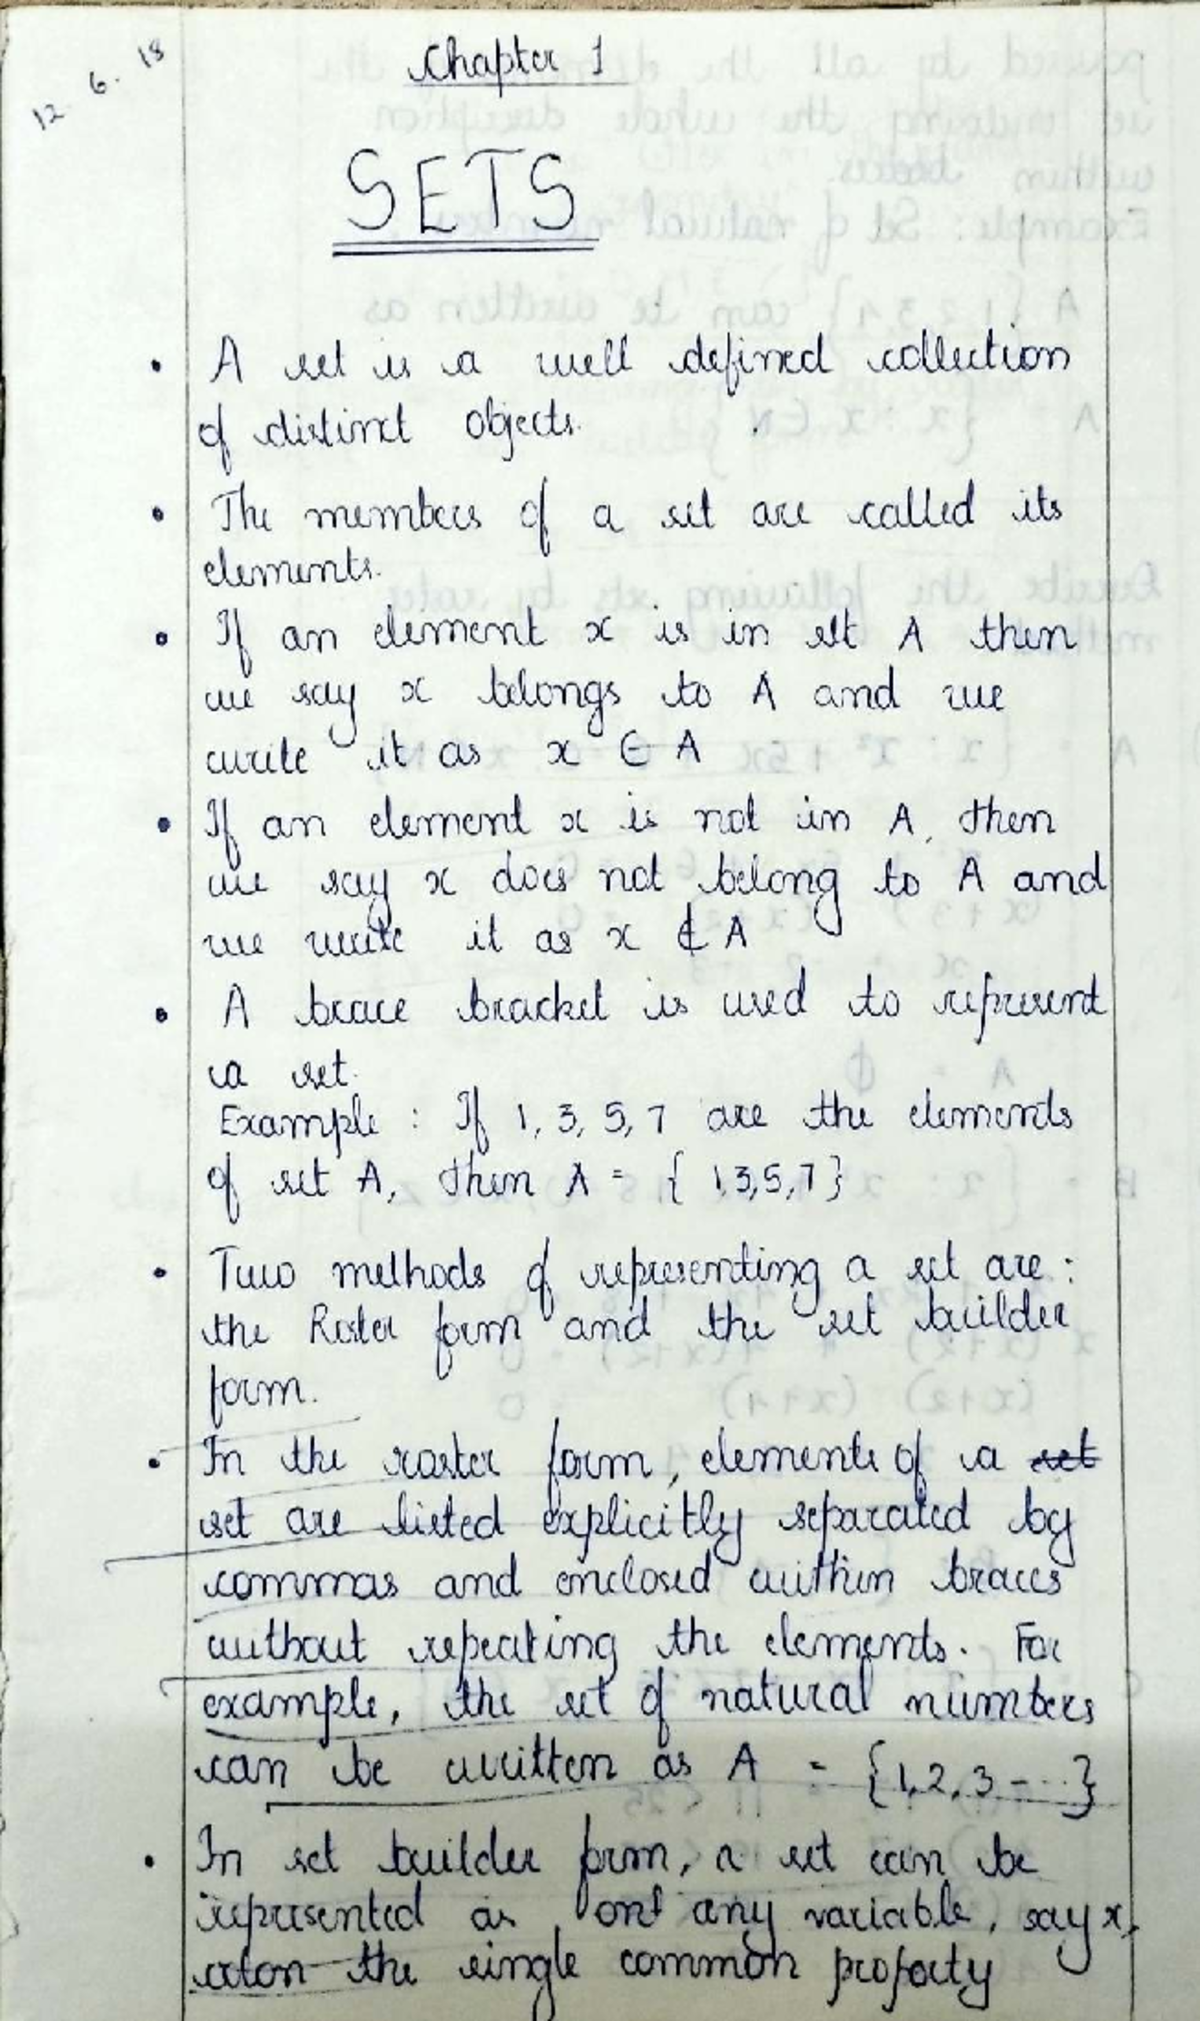 12. 6. 18
Chapter 1
SETS
• A set is a well defined collection
of distinct objects.
• The members of a set are called its
elements.
• If an element x is in set A then
we say x belongs to A and we
write it as x ∈ A
• If an element x is not in A, then
we say x does not belong to A and
we write it as x ∉ A
• A brace bracket is used to represent
a set.
Example : If 1, 3, 5, 7 are the elements
of set A, then A = { 1,3,5,7}
• Two methods of representing a set are :
the Roster form and the set builder
form.
• In the roster form, elements of a set
set are listed explicitly separated by
commas and enclosed within braces
without repeating the elements. For
example, the set of natural numbers
can be written as A = {1,2,3-...}
• In set builder form, a set can be
represented as any variable, say x,
the single common property